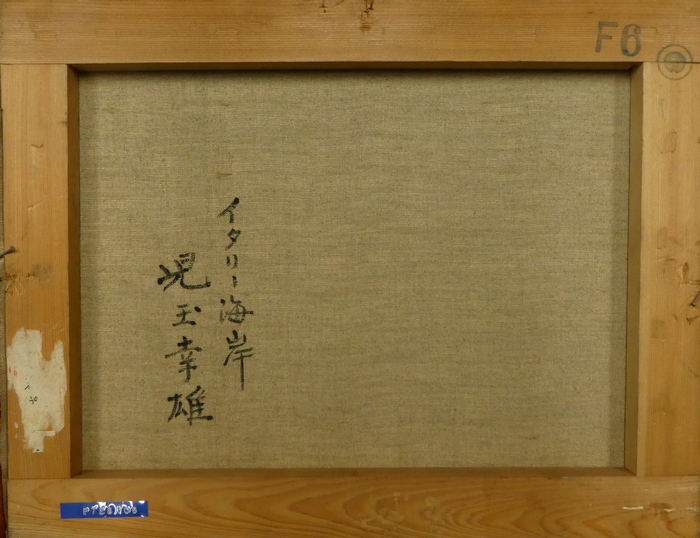 F6
イタリー海岸
児玉幸雄